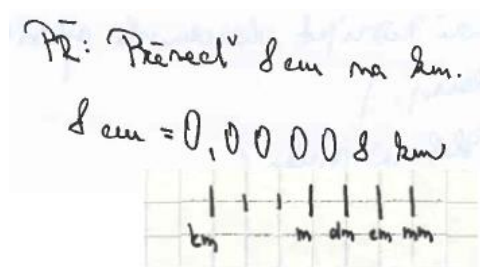 Př: Převeď 8 cm na km.
8 cm = 0,00008 km
km m dm cm mm